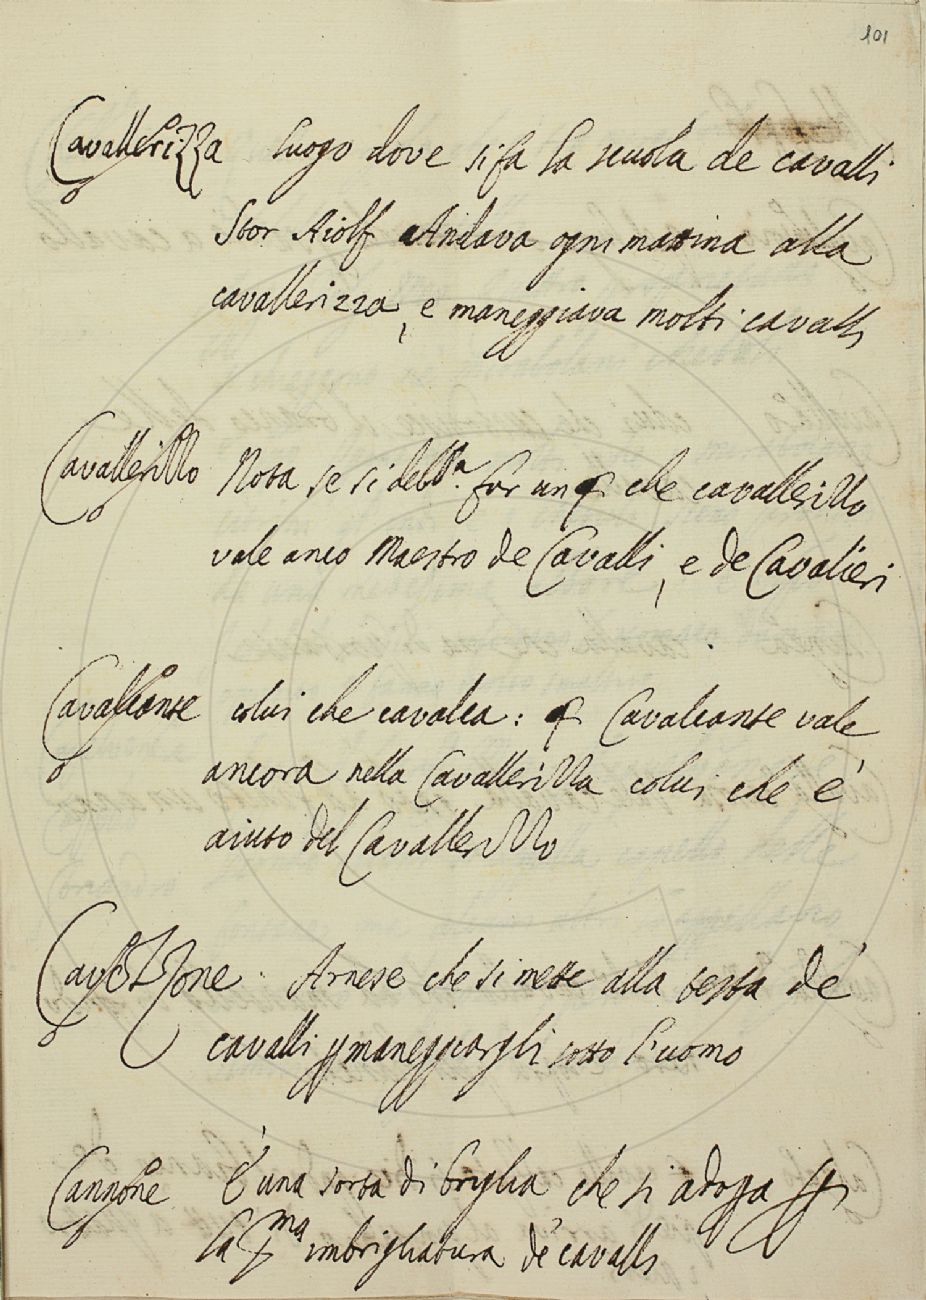 101
Cavallerizza Luogo dove si fa la scuola de cavalli
Stor Aiolf Andava ogni mattina alla
cavallerizza, e maneggiava molti cavalli
Cavallerizzo Nota se si debba far un che cavallerizzo
vale anco Maestro de Cavalli, e de Cavalieri
Cavalcante colui che cavalca: Cavalcante vale
ancora nella Cavallerizza colui che è
aiuto del Cavallerizzo
Cavezzone. Arnese che si mette alla testa de'
cavalli p maneggiargli sotto l'uomo
Cannone È una sorta di briglia che si adopra p
la pma imbrigliatura de cavalli